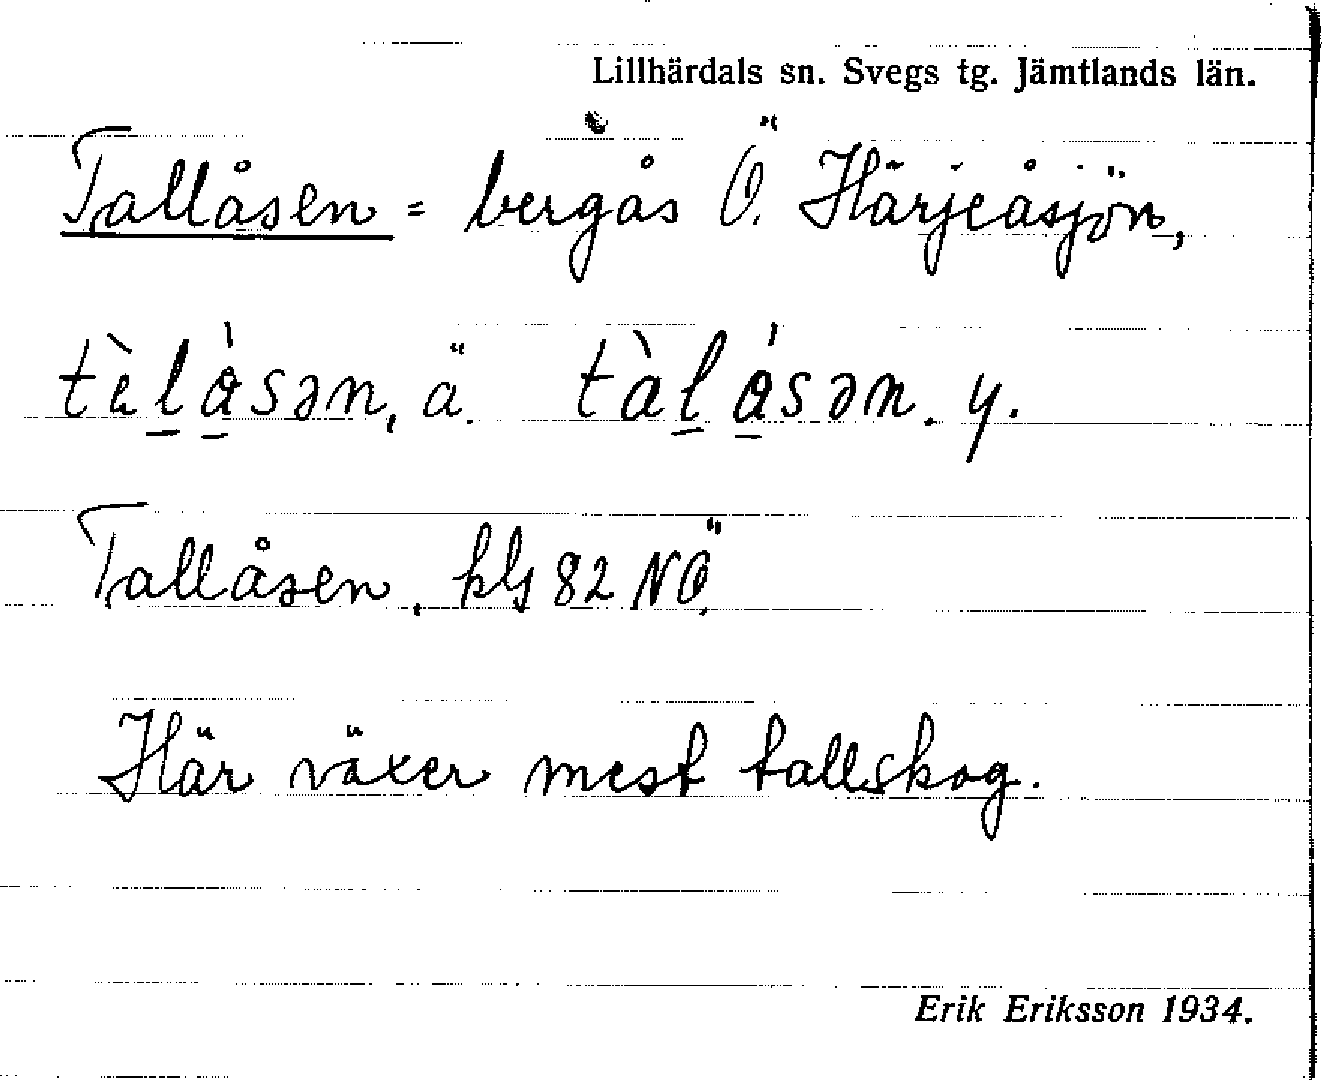 Lillhärdals sn. Svegs tg. Jämtlands län.
Tallåsen = bergås Ö. Härjeåsjön,
ä. y.
Tallåsen, kbl 82 NÖ.
Här växer mest tallskog.
Erik Eriksson 1934.